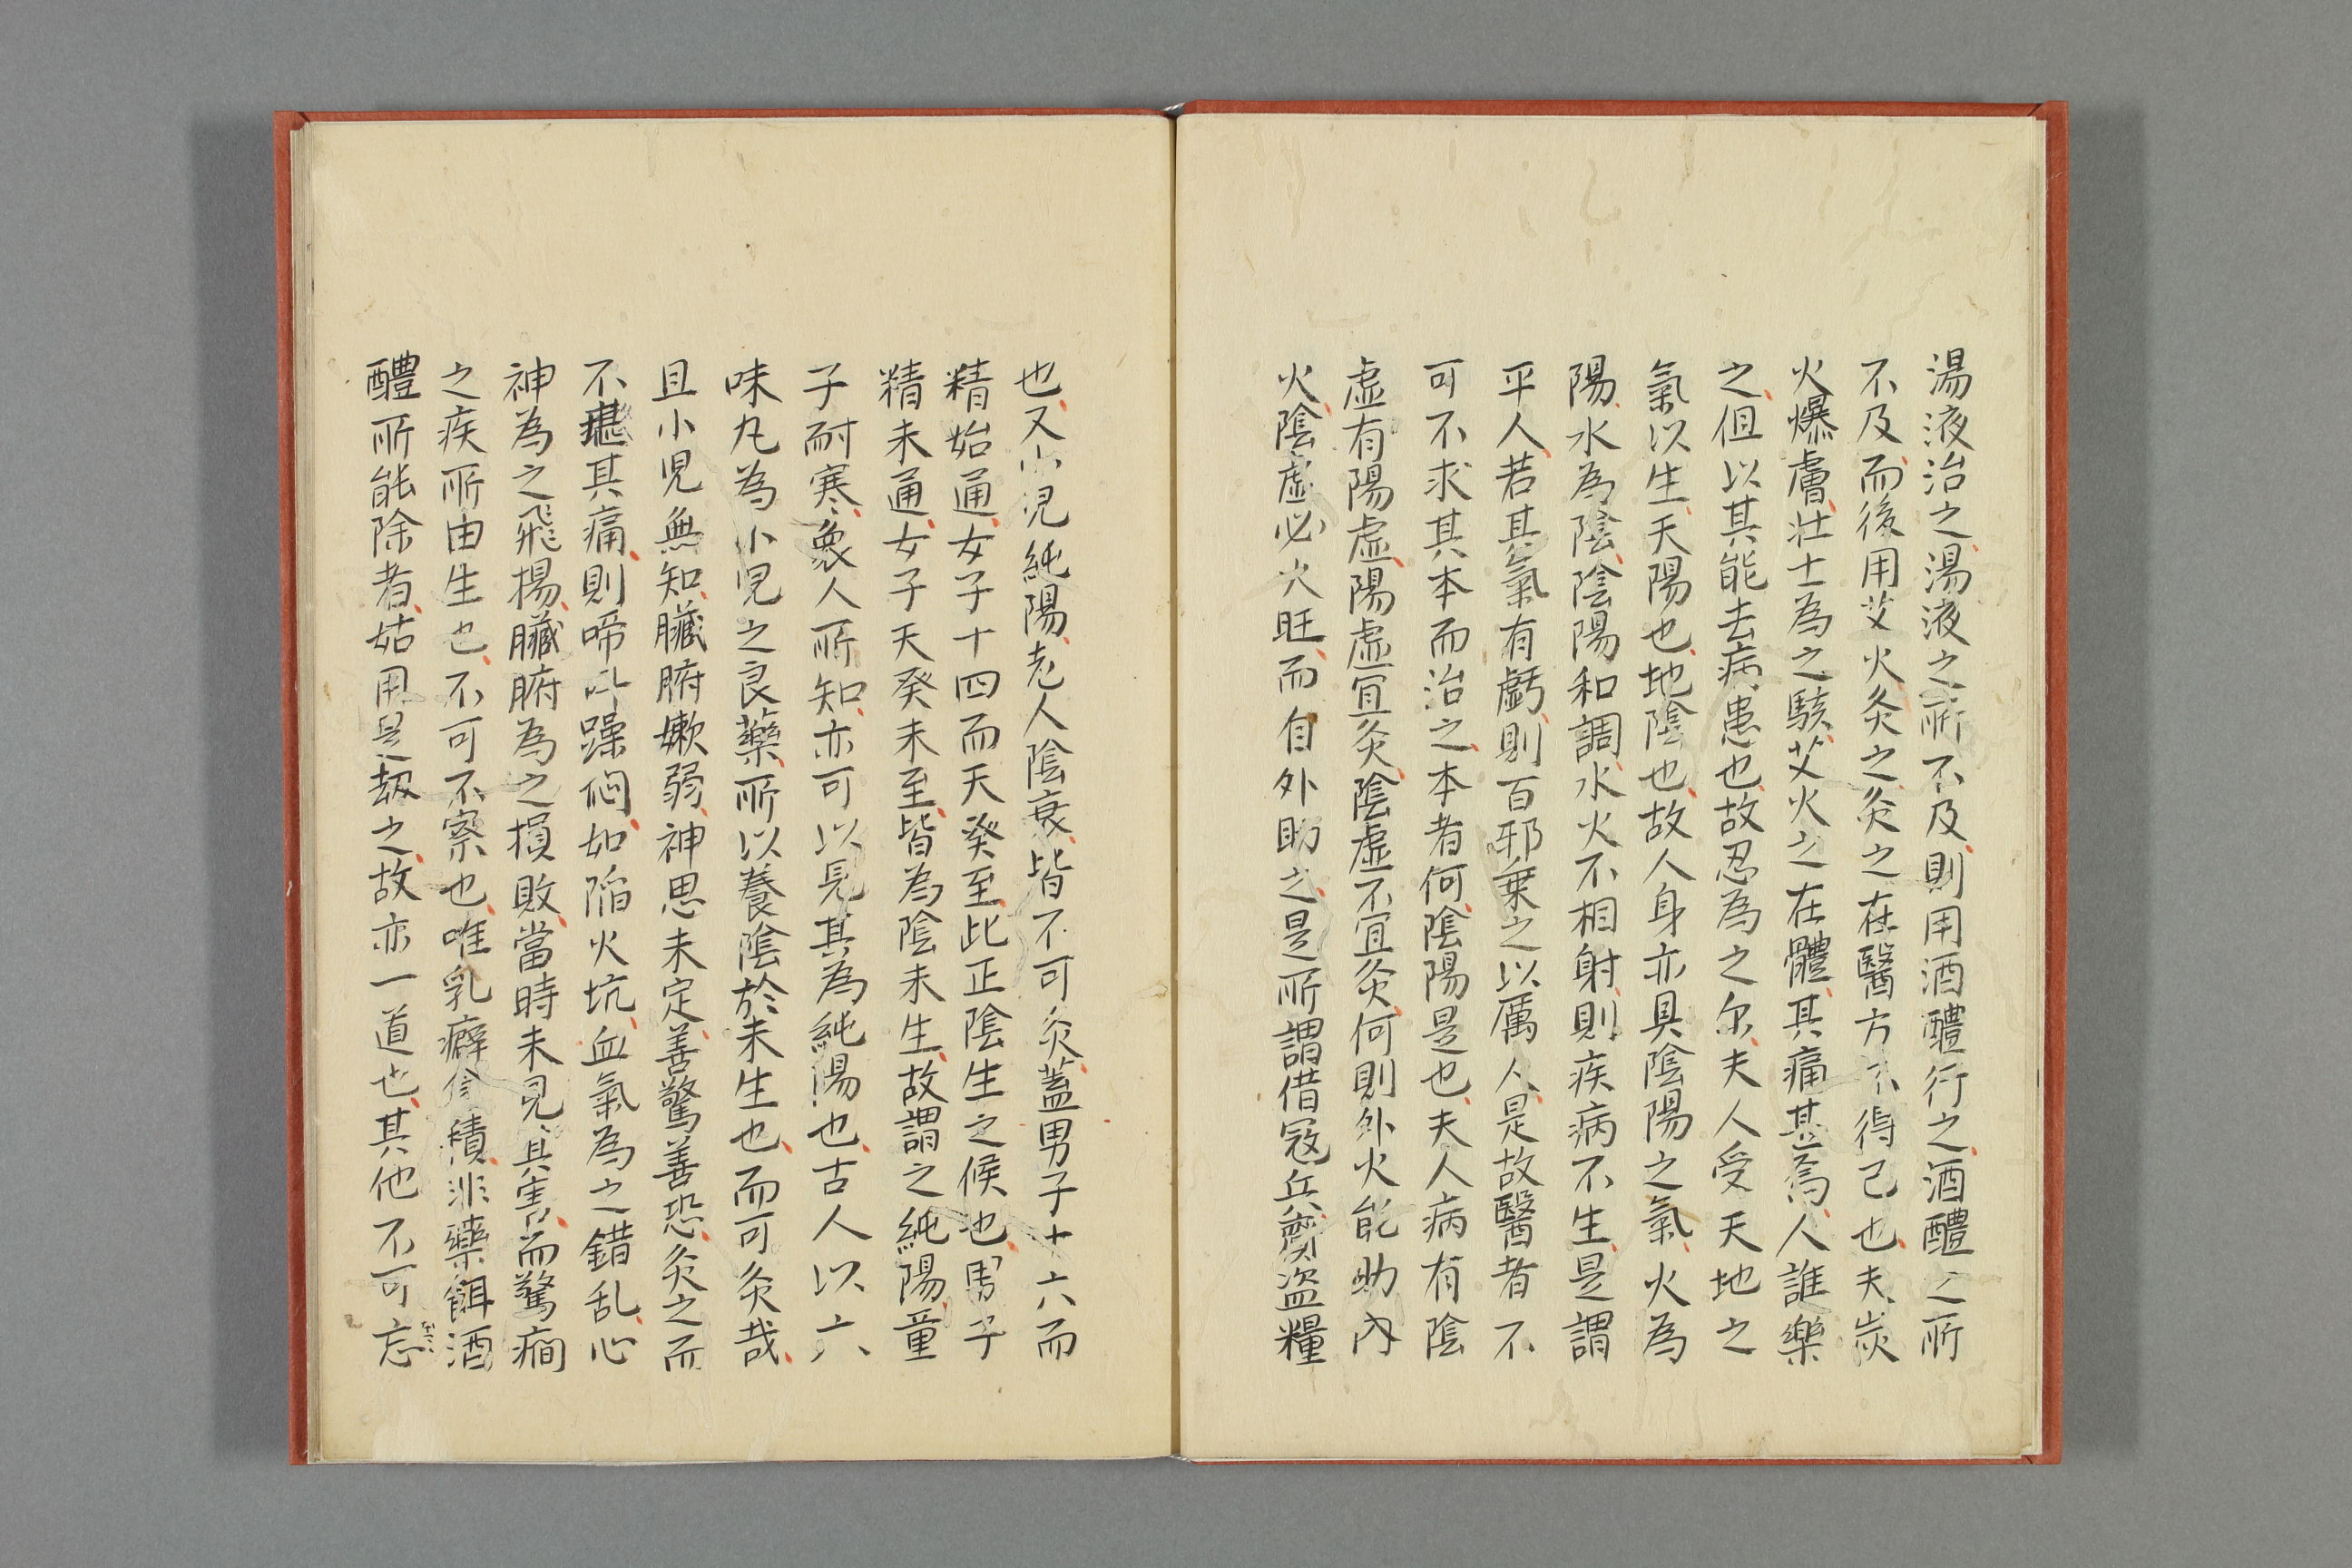 湯液治之湯液之所不及則用酒醴行之酒醴之所
不及而後用艾火灸之灸之在醫方不得已也夫炭
火爆膚壮士為之駭艾火之在體其痛甚焉人誰樂
之但以其能去病患也故忍為之尓夫人受天地之
氣以生天陽也地陰也故人身亦具陰陽之氣火為
陽水為陰陰陽和調水火不相射則疾病不生是謂
平人若其氣有虧則百邪乗之以厲人是故醫者不
可不求其本而治之本者何陰陽是也夫人病有陰
虚有陽虚陽虚宜灸陰虚不宜灸何則外火能助内
火陰虚必火旺而自外助之是所謂借冦兵齎盗糧
也又小児純陽老人陰衰皆不可灸蓋男子十六而
精始通女子十四而天癸至此正陰生之候也男子
精未通女子天癸未至皆為陰未生故謂之純陽童
子耐寒衆人所知亦可以見其為純陽也古人以六
味丸為小児之良藥所以養陰於未生也而可灸哉
且小児無知臓腑嫩弱神思未定善驚善恐灸之而
不堪其痛則啼叫躁悶如陥火坑血氣為之錯乱心
神為之飛揚臓腑為之損敗當時未見其害而驚癇
之疾所由生也不可不察也唯乳癖食積非藥餌酒
醴所能除者姑用是刼之故亦一道也其他不可忘